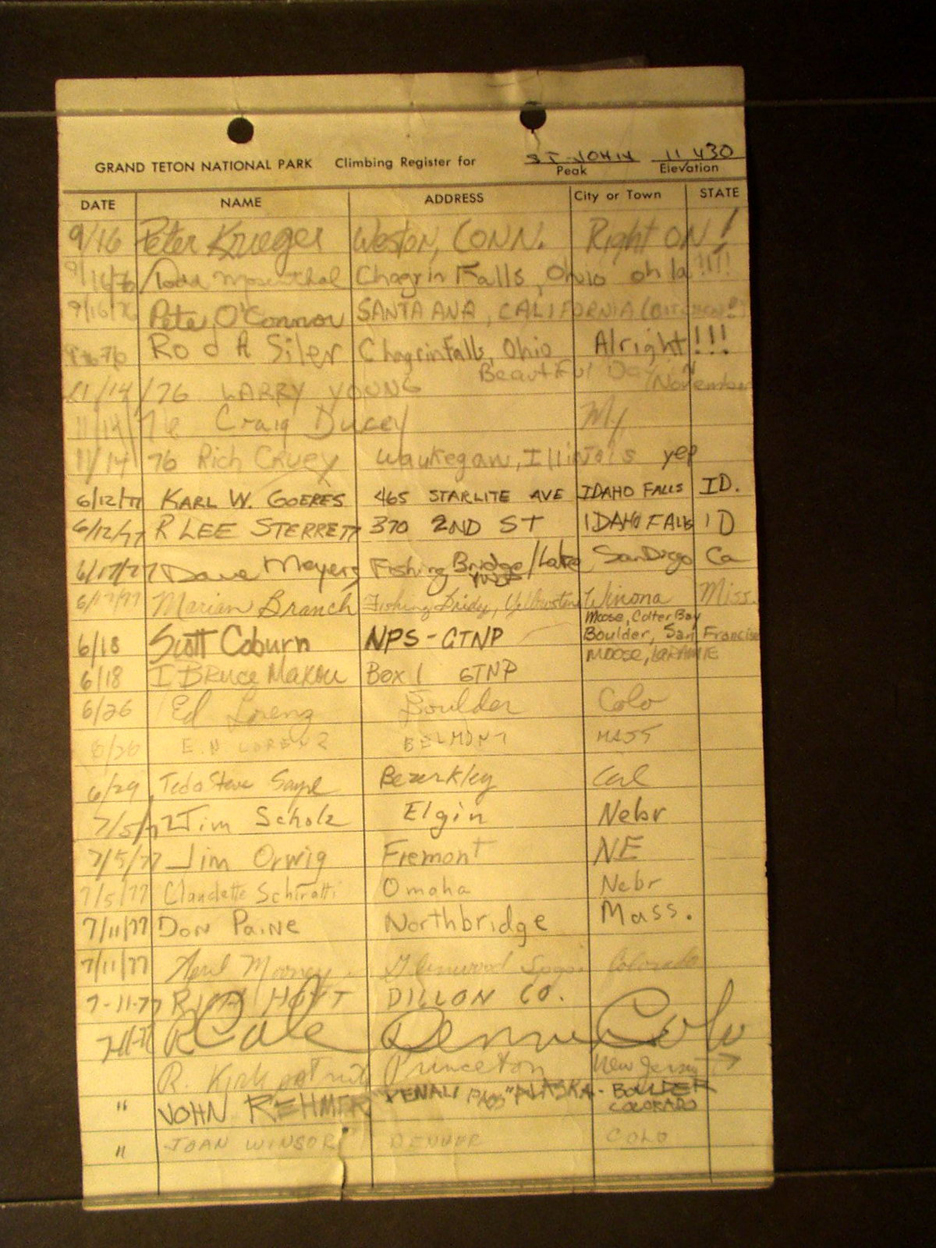 ST. JOHN 11 430
GRAND TETON NATIONAL PARK Climbing Register for Peak Elevation
DATE NAME ADDRESS City or Town STATE
9/16 Peter Krueger Weston, CONN. Right ON!
9/16/76 Todd Mosenthal Chagrin Falls, Ohio oh la !!!!
9/16/76 Pete O'Connor SANTA ANA, CALIFORNIA
Rod A Siler Chagrin Falls, Ohio Alright!!!
Beautiful Day in November
11/14/76 LARRY YOUNG
11/14/76 Craig Ducey
11/14 76 Rich Cruey Waukegan, Illinois yep
6/12/77 KARL W. GOERES 465 STARLITE AVE IDAHO FALLS ID.
6/12/77 R LEE STERRETT 370 2ND ST IDAHO FALLS ID
6/17/77 Dave Meyers Fishing Bridge/Lake San Diego Ca
6/17/77 Marian Branch Fishing Bridg, Yellowstone Winona Miss.
Moose, Colter Bay
6/18 Scott Coburn NPS - GTNP Boulder, San Francisc
MOOSE, LARAMIE
6/18 I Bruce Makou Box 1 GTNP
6/26 Ed Lorenz Boulder Colo
6/26 E.N LORENZ BELMONT MASS
6/29 Ted Steve Bezerkley Cal
7/5/77 Jim Scholz Elgin Nebr
7/5/77 Jim Orwig Fremont NE
7/5/77 Claudette Schiratti Omaha Nebr
7/11/77 DON PAINE Northbridge Mass.
7/11/77 April Mooney Glenwood Spgs Colorado
7-11-77 RICH HOYT DILLON CO.
7-11-77 R Cale Denver Colo
R. Kirkpatrick Princeton New Jersey
" JOHN REHMER "DENALI PASS" ALASKA - BOULDER
COLORADO
" JOAN WINSOR DENVER COLO